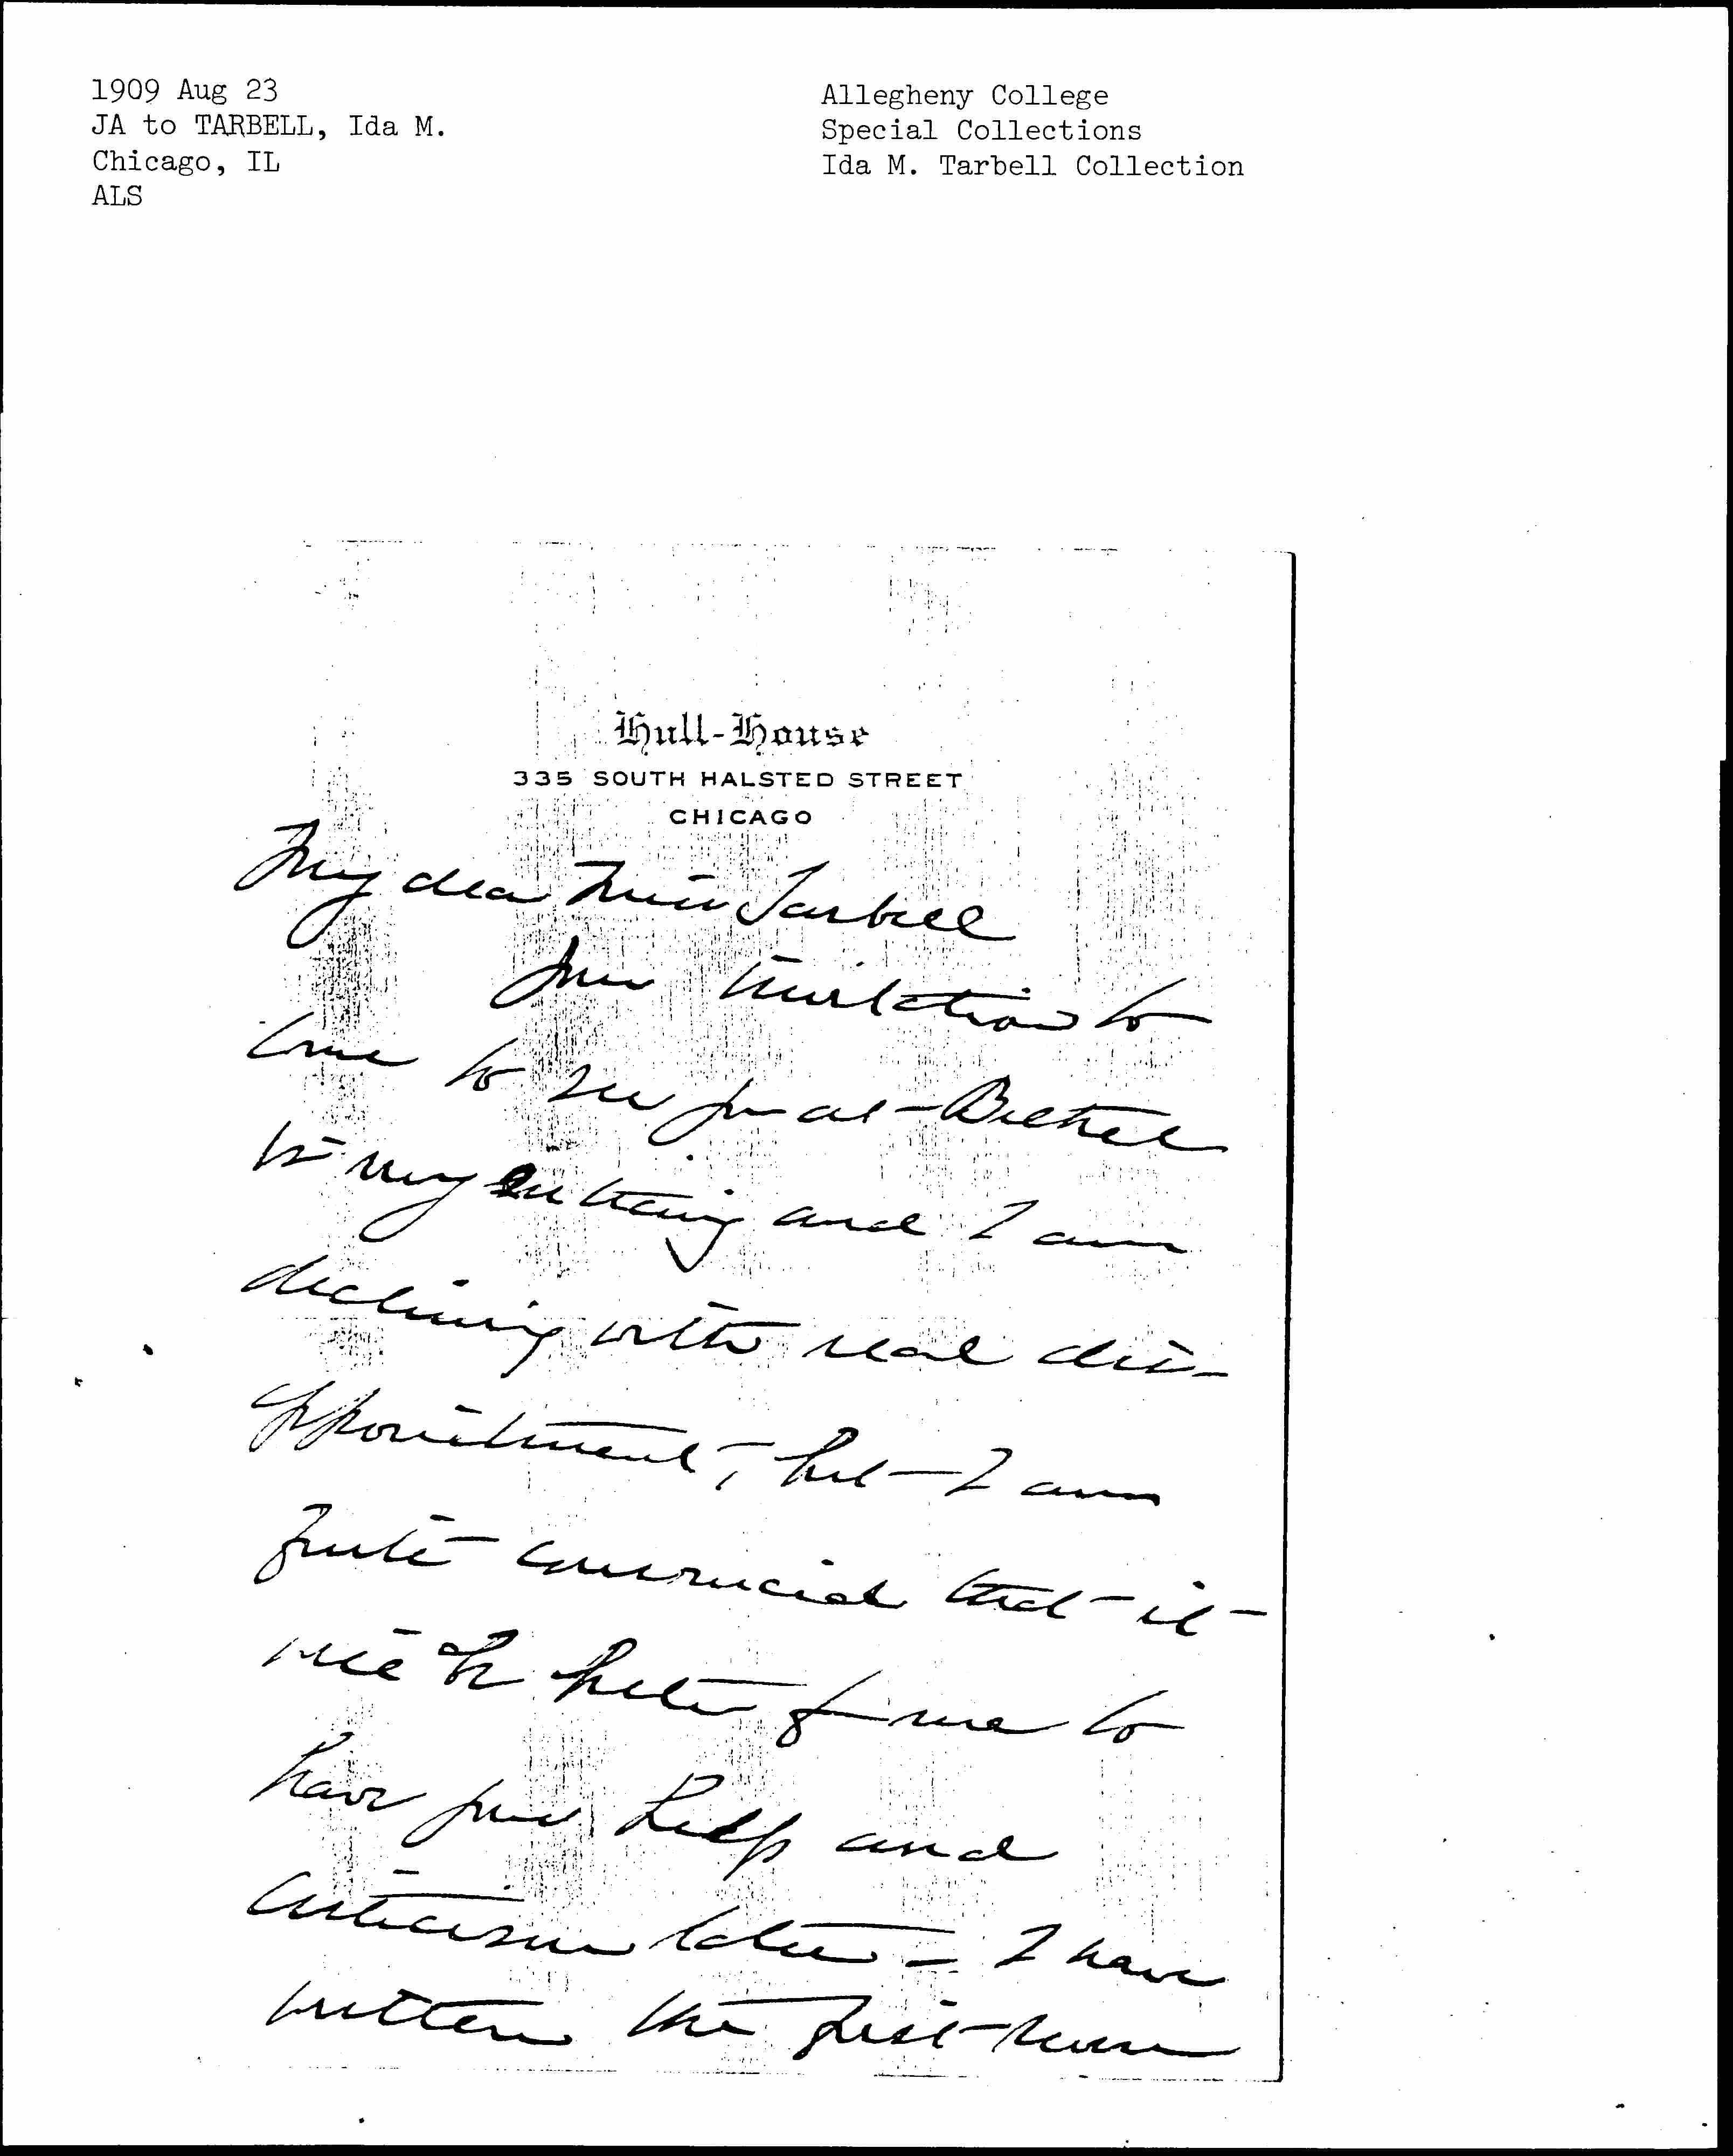 1909 Aug 23
JA to TARBELL, Ida M.
Chicago, IL
ALS
Allegheny College
Special Collections
Ida M. Tarbell Collection
Hull-House
335 SOUTH HALSTED STREET
CHICAGO
My dear Miss Tarbell
Your invitation to
come to see you at Bethel
is very enticing and I am
declining with real dis-
appointment, but I am
quite convinced that it
will be better for me to
have your help and
criticism later - I have
written the first two